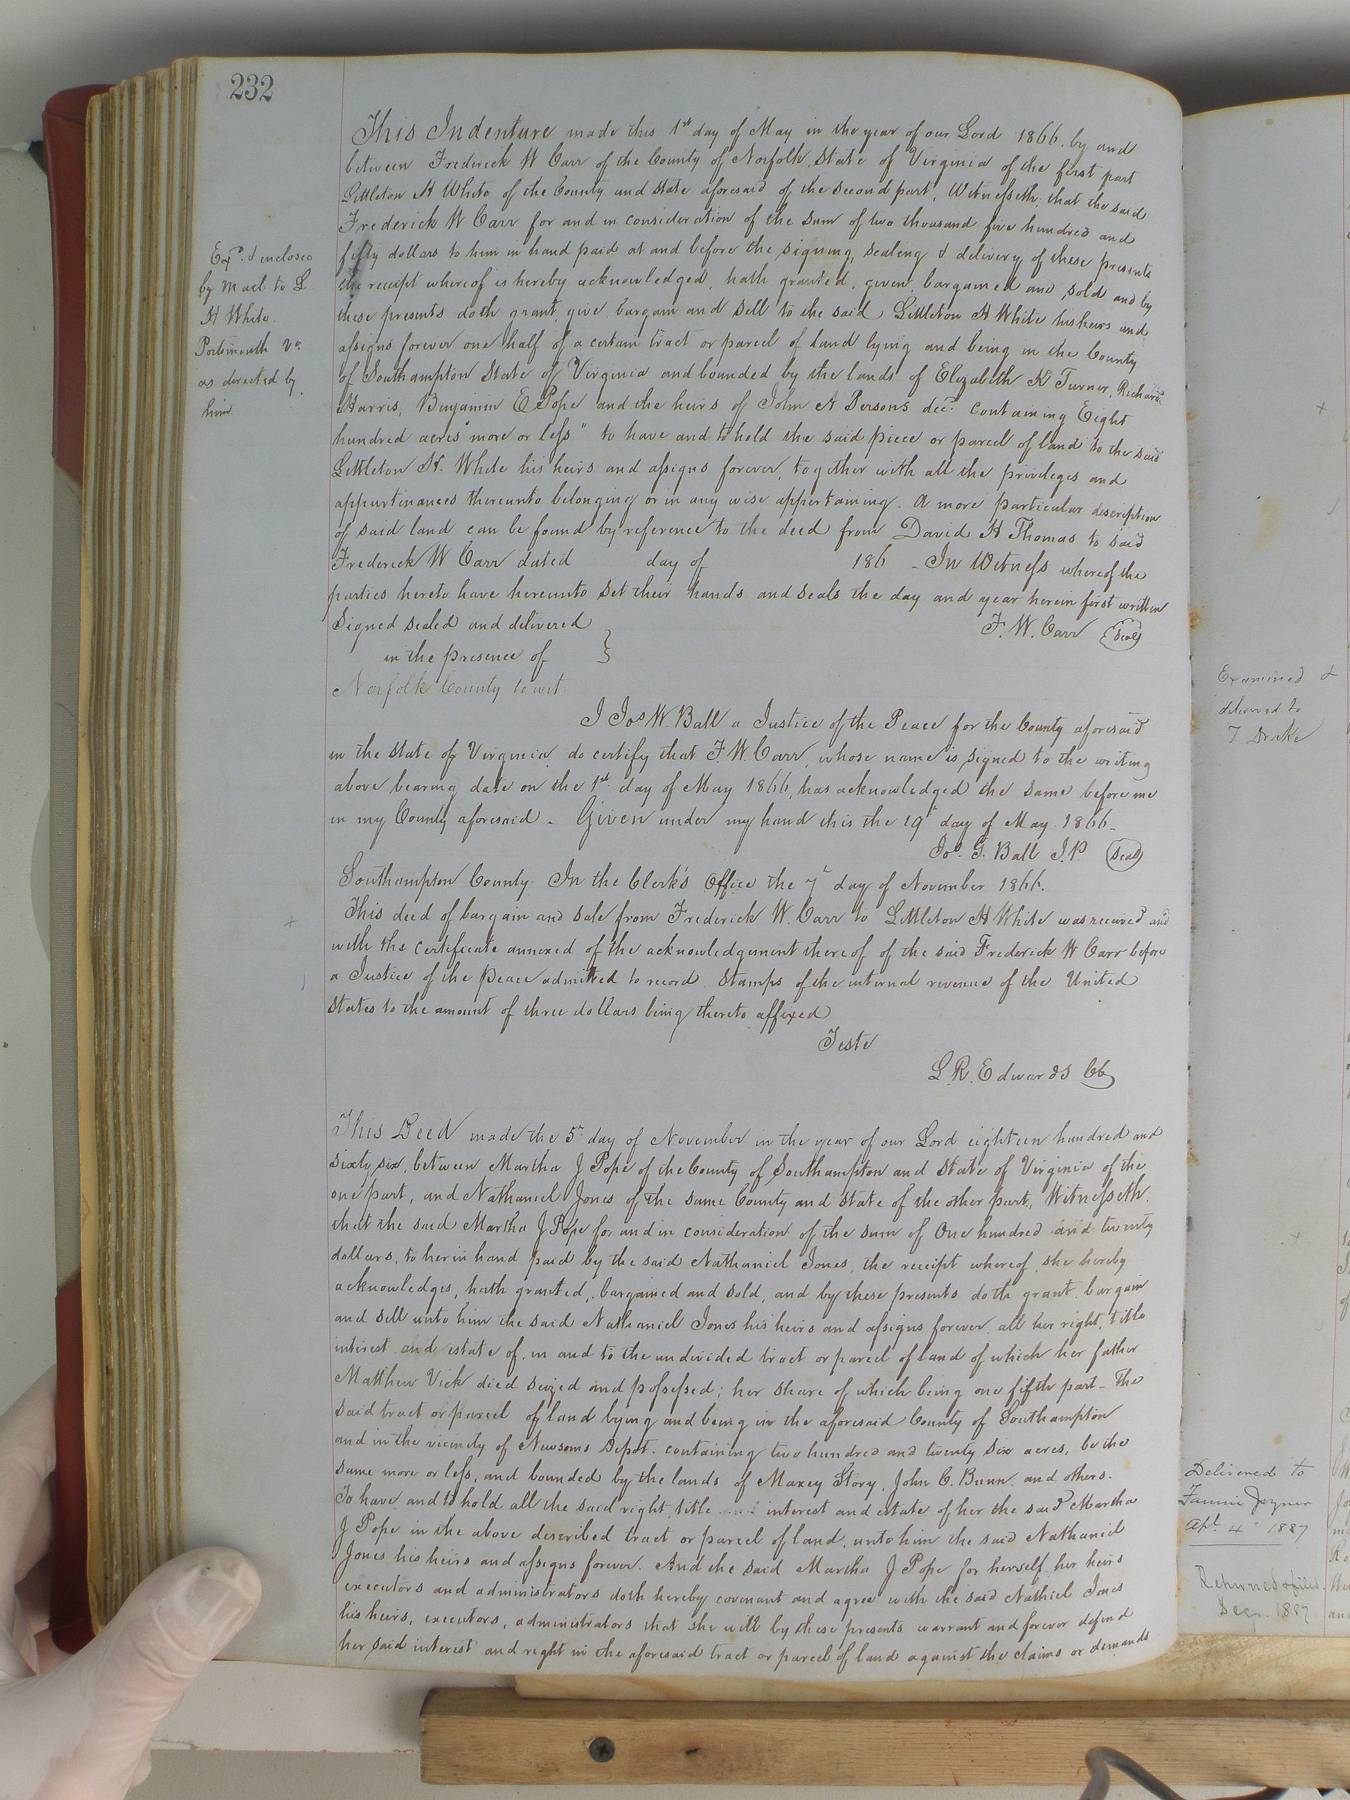 232
This Indenture made this 1st day of May in the year of our Lord 1866. by and
between Frederick W Carr of the County of Norfolk, State of Virginia of the first part
Littleton H White of the County and state aforesaid of the second part, Witnesseth that the said
Frederick W Carr for and in consideration of the sum of two thousand five hundred and
fifty dollars to him in hand paid at and before the signing, sealing & delivery of these presents
the receipt whereof is hereby acknowledged, hath granted, given, bargained and sold and by
these presents doth grant, give, bargain and sell to the said Littleton H White his heirs and
assigns forever one half of a certain tract or parcel of land lying and being in the County
of Southampton State of Virginia and bounded by the lands of Elizabeth Turner, Richard
Harris, Benjamin E Pope and the heirs of John A Persons decd. containing Eight
hundred acres "more or less" to have and to hold the said piece or parcel of land to the said
Littleton H. White his heirs and assigns forever, together with all the privileges and
appurtinances thereunto belonging or in any wise appertaining. A more particular discription
of said land can be found by reference to the deed from David H Thomas to said
Frederick W Carr dated day of 186 - In Witness whereof the
parties hereto have hereunto set their hands and seals the day and year herein first written
Signed sealed and delivered } F. W. Carr (Seal)
in the presence of
Norfolk County to wit
I Jos W. Ball a Justice of the Peace for the County aforesaid
in the state of Virginia, do certify that F. W. Carr, whose name is signed to the writing
above bearing date on the 1st day of May 1866, has acknowledged the same before me
in my County aforesaid - Given under my hand this the 19th day of May 1866-
Jos. G. Ball J.P. (Seal)
Southampton County. In the Clerk's Office the 7th day of November 1866.
This deed of bargain and sale from Frederick W. Carr to Littleton H White was received and
with the certificate annexed of the acknowledgement thereof of the said Frederick W Carr before
a Justice of the Peace admitted to record Stamps of the internal revenue of the United
States to the amount of three dollars being thereto affixed
Teste
L. R. Edwards CC
This Deed made the 5th day of November in the year of our Lord eighteen hundred and
sixty six, between Martha J Pope of the County of Southampton and State of Virginia of the
one part, and Nathaniel Jones of the same County and State of the other part, Witnesseth.
that the said Martha J Pope for and in consideration of the sum of One hundred and twenty
dollars, to her in hand paid by the said Nathaniel Jones, the receipt whereof, she hereby
acknowledges, hath granted, bargained and sold, and by these presents doth grant, bargain
and sell unto him the said Nathaniel Jones his heirs and assigns forever, all her right, title
interest and estate of, in and to the undivided tract or parcel of land of which her father
Matthew Vick died seized and possessed; her share of which being one fifth part - The
said tract or parcel of land lying and being in the aforesaid County of Southampton
and in the vicinity of Newsoms Depot. containing two hundred and twenty six acres, be the
same more or less, and bounded by the lands of Maxey Story, John C. Bunn. and others.
To have and to hold all the said right, title and interest and estate of her the said Martha
J Pope in the above described tract or parcel of land, unto him the said Nathaniel
Jones his heirs and assigns forever. And the said Martha J Pope for herself her heirs
executors and administrators doth hereby covenant and agree with the said Nathiel Jones
his heirs, executors, administrators that she will by these presents warrant and forever defend
her said interest and right in the aforesaid tract or parcel of land against the claims or demands
Exd. & enclosed
by mail to L
H White.
Portsmouth Va.
as directed by
him
Examined &
delivered to
T Drake
Delivered to
Fannie Joyner
Apl. 4th 1887
Returned & filed
Decr. 1887